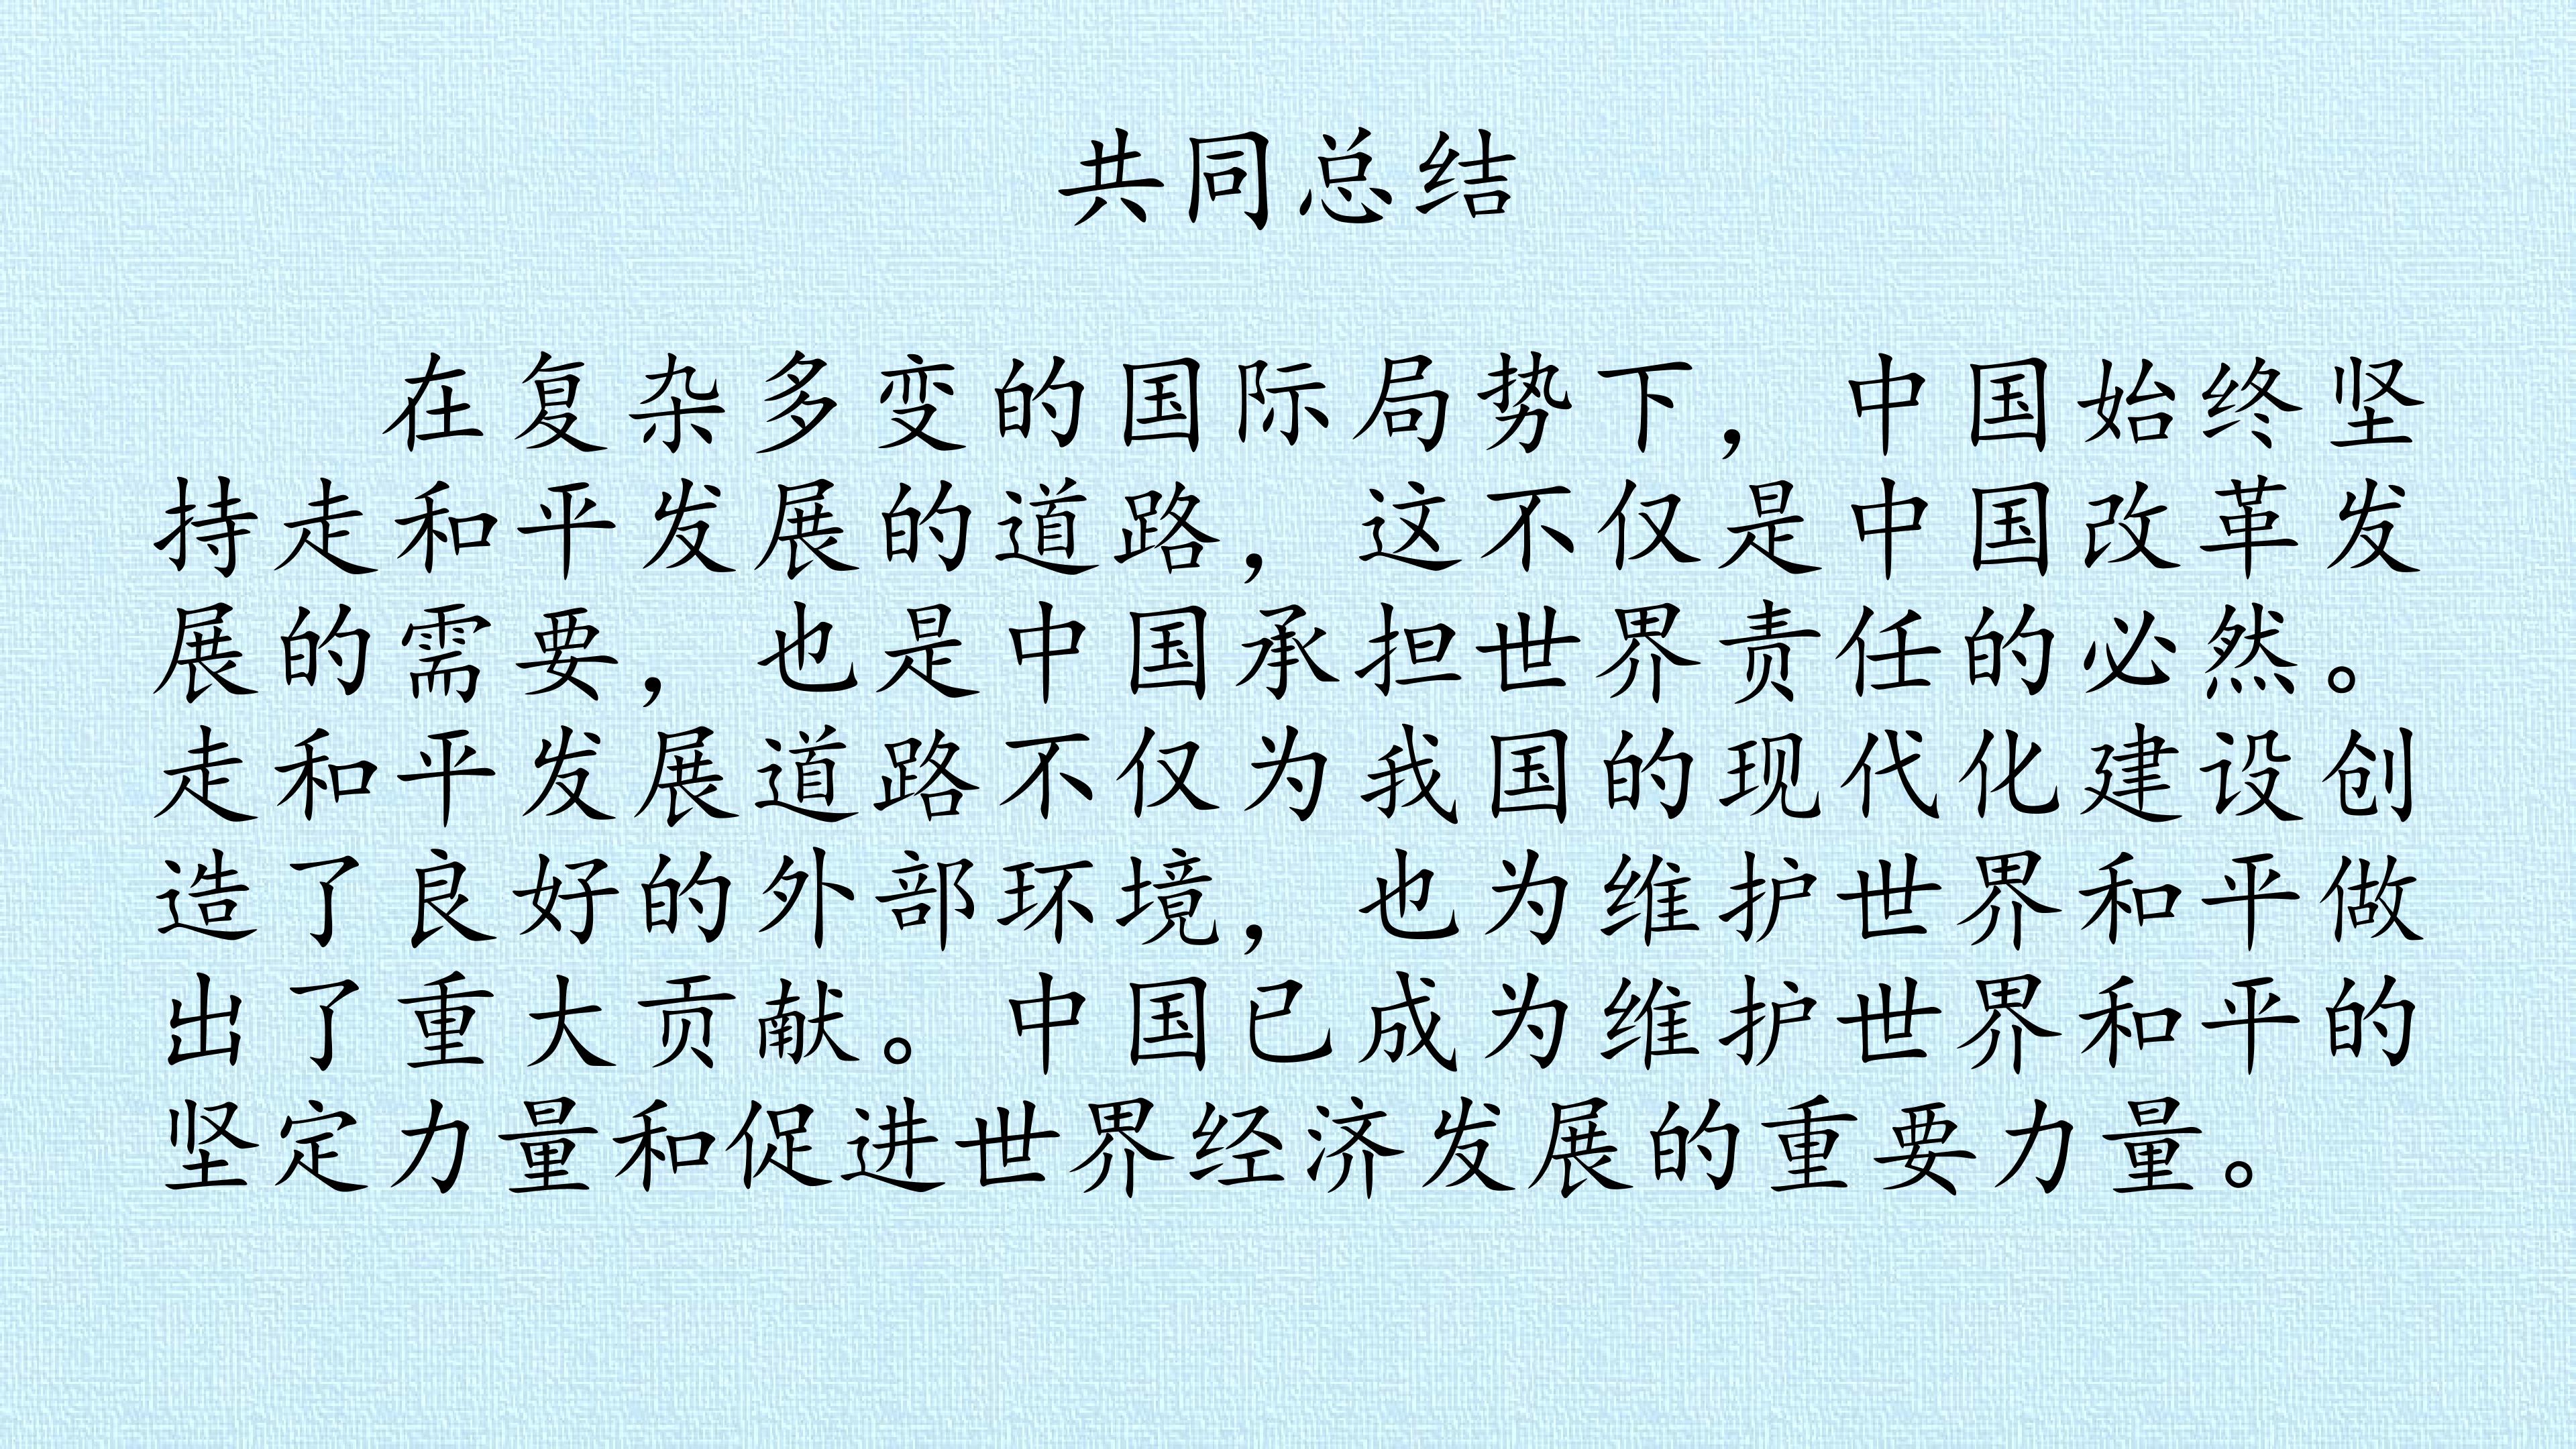 共同总结
在复杂多变的国际局势下，中国始终坚
持走和平发展的道路，这不仅是中国改革发
展的需要，也是中国承担世界责任的必然。
走和平发展道路不仅为我国的现代化建设创
造了良好的外部环境，也为维护世界和平做
出了重大贡献。中国已成为维护世界和平的
坚定力量和促进世界经济发展的重要力量。